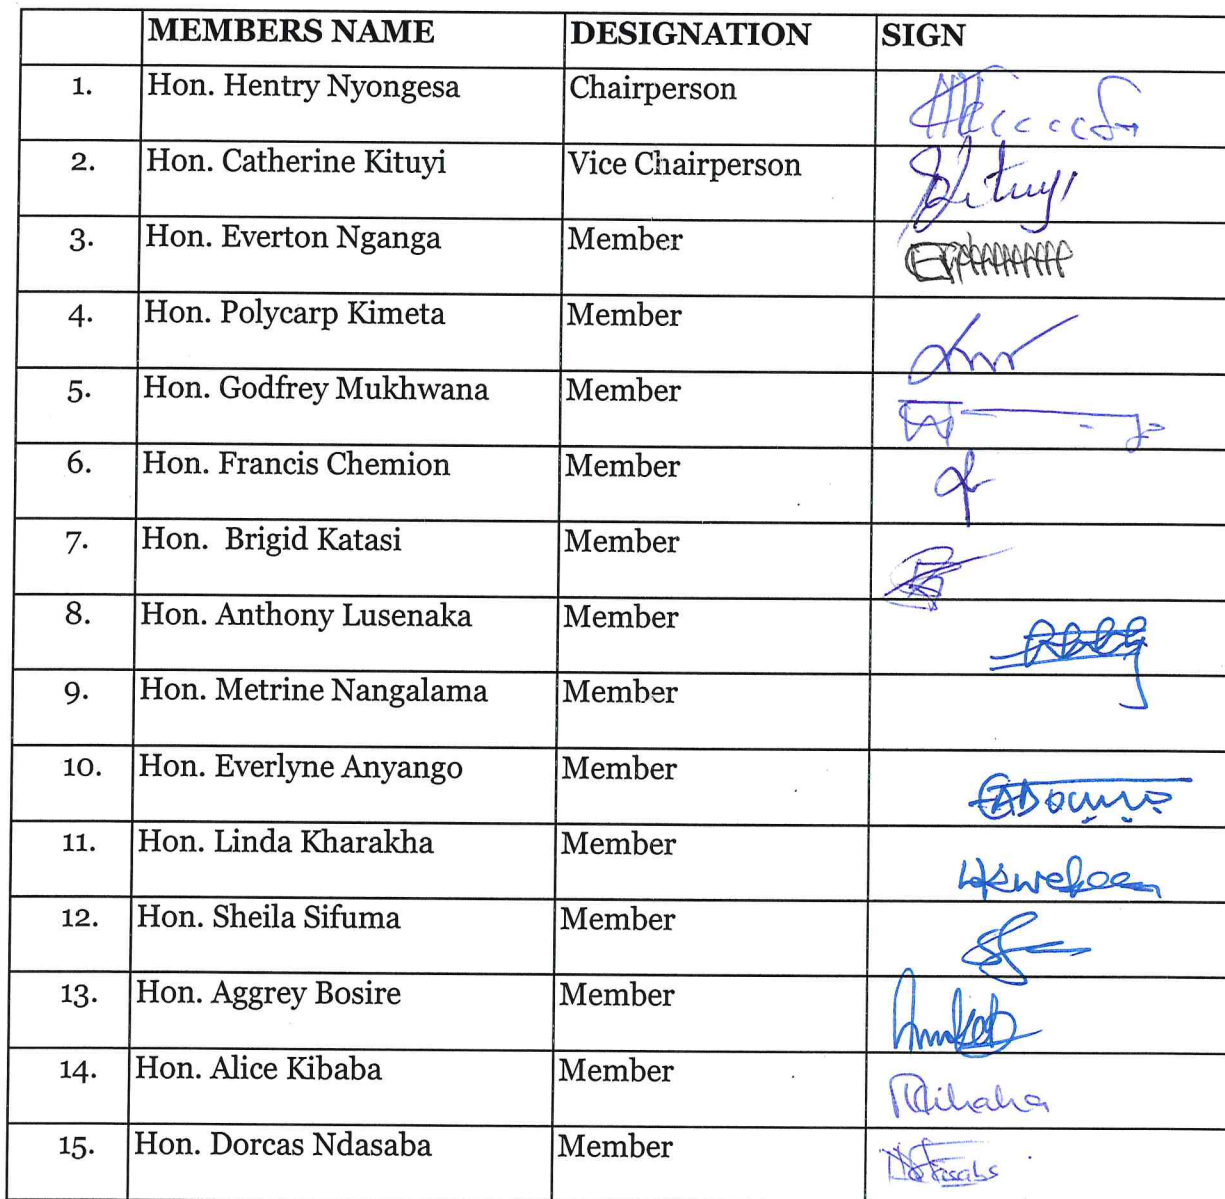 MEMBERS NAME DESIGNATION SIGN
1. Hon. Hentry Nyongesa Chairperson
2. Hon. Catherine Kituyi Vice Chairperson Kituyi
3. Hon. Everton Nganga Member
4. Hon. Polycarp Kimeta Member
5. Hon. Godfrey Mukhwana Member
6. Hon. Francis Chemion Member
7. Hon. Brigid Katasi Member
8. Hon. Anthony Lusenaka Member
9. Hon. Metrine Nangalama Member
10. Hon. Everlyne Anyango Member
11. Hon. Linda Kharakha Member
12. Hon. Sheila Sifuma Member
13. Hon. Aggrey Bosire Member
14. Hon. Alice Kibaba Member
15. Hon. Dorcas Ndasaba Member